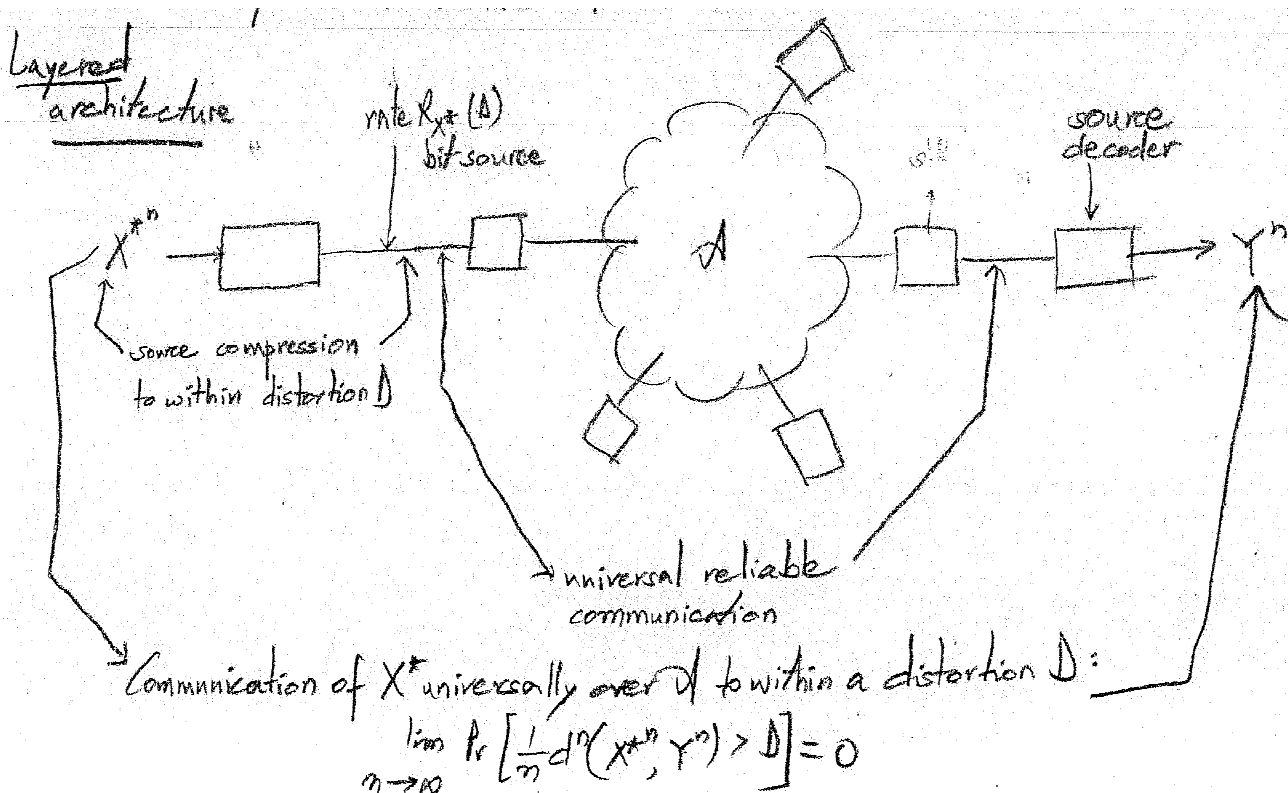 Layered
architecture
rate R_X*(D)
bit source
source
decoder
X*ⁿ
A
Yⁿ
source compression
to within distortion D
universal reliable
communication
Communication of X* universally over A to within a distortion D:
lim Pr [ 1/n dⁿ(X*ⁿ, Yⁿ) > D ] = 0
n→∞